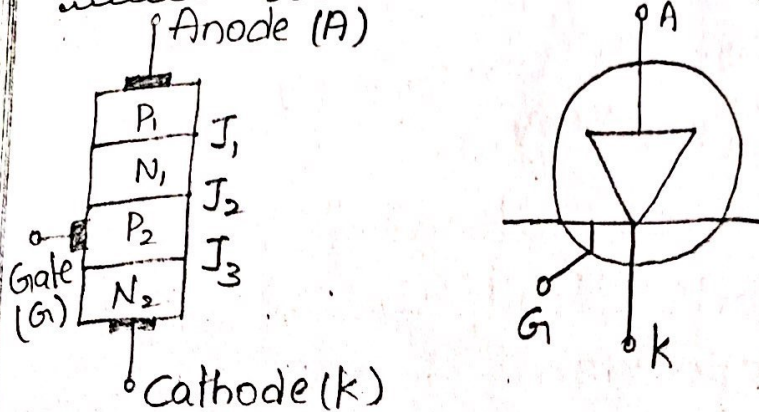 Anode (A)
P₁
J₁
N₁
J₂
P₂
J₃
Gate
(G)
N₂
Cathode (K)
A
G
K